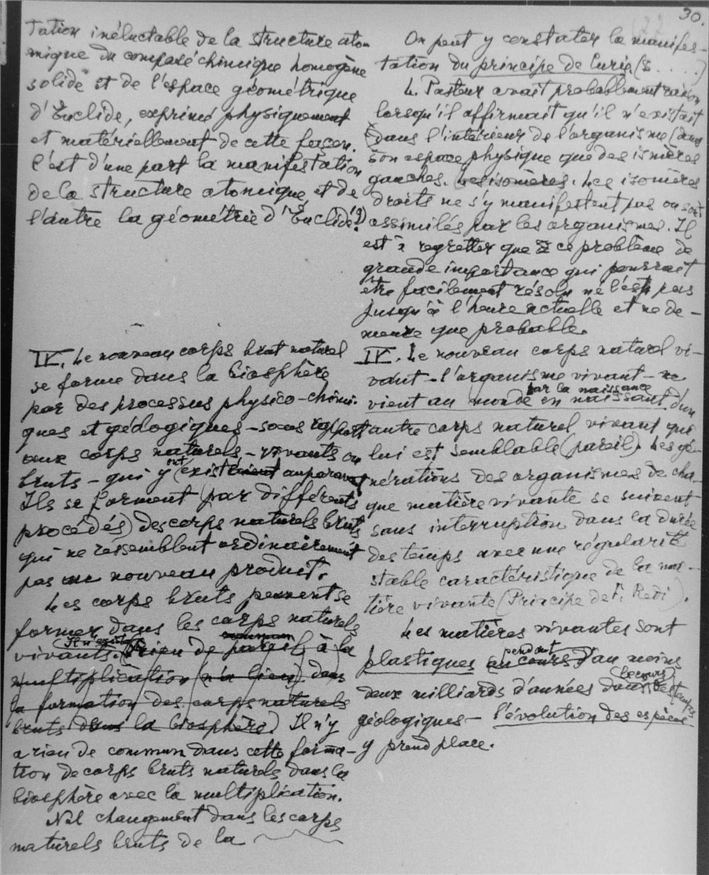 30.
tation inéluctable de la structure ato-
mique du composé chimique homogène
solide et de l'espace géométrique
d'Euclide, exprimé physiquement
et matériellement de cette façon.
C'est d'une part la manifestation
de la structure atomique, et de
l'autre la géométrie d'Euclide?)
IV. Le nouveau corps brut naturel
se forme dans la biosphère
par des processus physico-chimi-
ques et géologiques – sous
aux corps naturels – vivants ou
bruts – qui y ont existé auparavant
Ils se forment (par différents
procédés) des corps naturels bruts
qui ne ressemblent ordinairement
pas au nouveau produit.
Les corps bruts peuvent se
former dans les corps naturels
vivants. Il n'existe (rien de pareil à la
multiplication (n'a lieu) dans
la formation des corps naturels
bruts dans la biosphère.) Il n'y
a rien de commun dans cette forma-
tion de corps bruts naturels dans la
biosphère avec la multiplication.
Nul changement dans les corps
naturels bruts de la
On peut y constater la manifes-
tation du principe de Curie (§ . . . . )
L. Pasteur avait probablement raison
lorsqu'il affirmait qu'il n'existait
dans l'intérieur de l'organisme (dans
son espace physique que des isomères
gauches. Les isomères. Les isomères
droits ne s'y manifestent pas ou sont
assimilés par les organismes. Il
est à regretter que ce problème de
grande importance qui pourrait
être facilement résolu ne l'est pas
jusqu'à l'heure actuelle et ne de-
meure que probable.
IV. Le nouveau corps naturel vi-
vant – l'organisme vivant – ne
vient au monde par la naissance en naissant d'un
autre corps naturel vivant qui
lui est semblable (pareil). Les gé-
nérations des organismes de cha-
que matière vivante se suivent
sans interruption dans la durée
des temps avec une régularité
stable caractéristique de la ma-
tière vivante (Principe de F. Redi).
Les matières vivantes sont
plastiques au cours pendant d'au moins
deux milliards d'années
géologiques – l'évolution des espèces
y prend place.